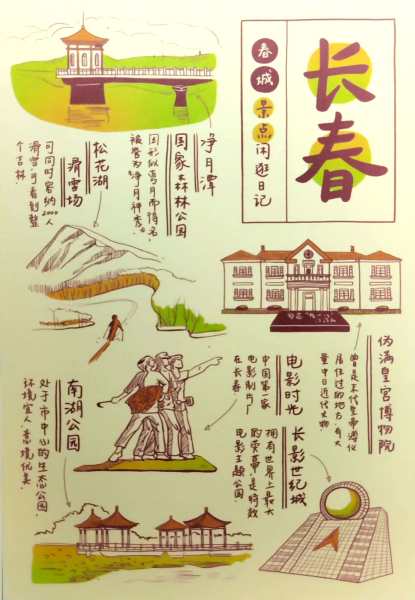 长春
春城景点闲逛日记
净月潭
国家森林公园
因形似弯月而得名,
被誉为“净月神秀”.
松花湖
滑雪场
可同时容纳2000人
滑雪,可看到整
个吉林.
伪满皇宫博物院
曾是末代皇帝溥仪
居住过的地方,有大
量中日近代文物
电影时光
中国第一家
电影制片厂
在长春.
长影世纪城
拥有世界上最大
的荧幕,是特效
电影主题公园.
南湖公园
处于市中心的生态公园,
环境宜人,意境优美.